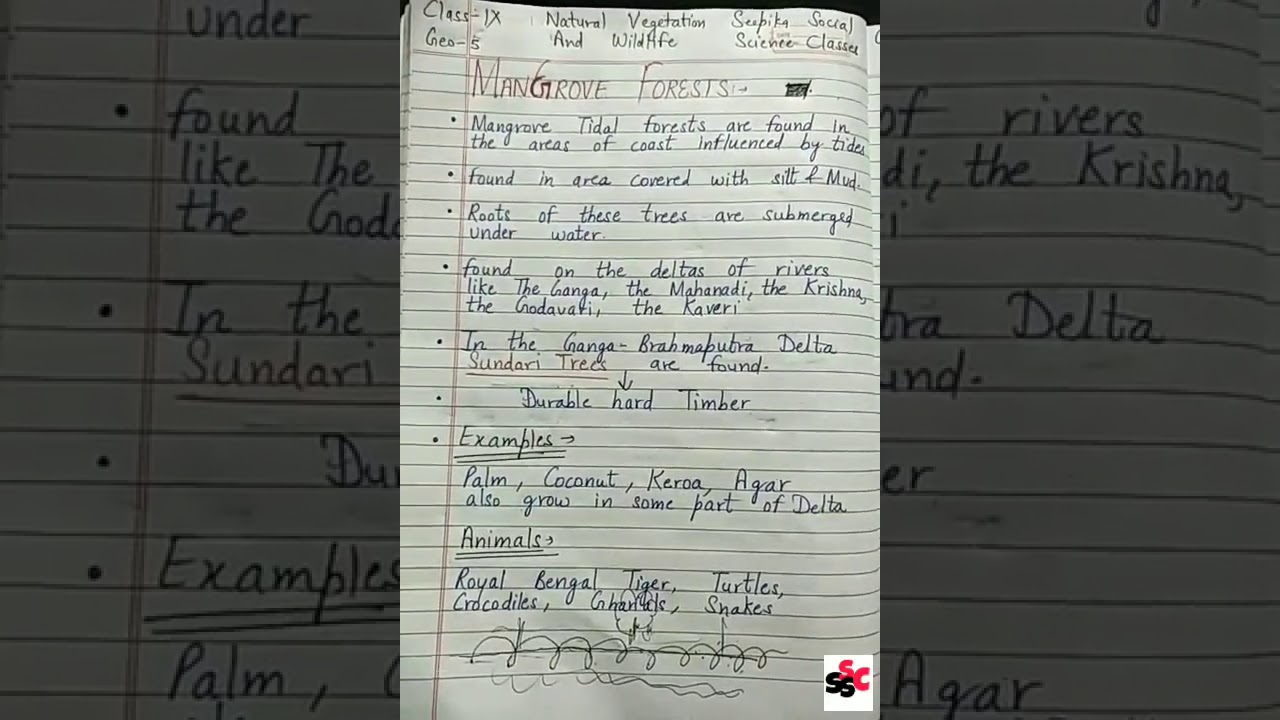 Class-IX Natural Vegetation Seepika Social
Geo-5 And Wildlife Science Classes
MANGROVE FORESTS:→
• Mangrove Tidal forests are found in
the areas of coast influenced by tides
• found in area covered with silt & Mud.
• Roots of these trees are submerged
under water.
• found on the deltas of rivers
like The Ganga, the Mahanadi, the Krishna,
the Godavari, the Kaveri
• In the Ganga-Brahmaputra Delta
Sundari Trees are found.
↓
• Durable hard Timber
• Examples →
Palm, Coconut, Keroa, Agar
also grow in some part of Delta
Animals →
Royal Bengal Tiger, Turtles,
Crocodiles, Snakes
SSSC